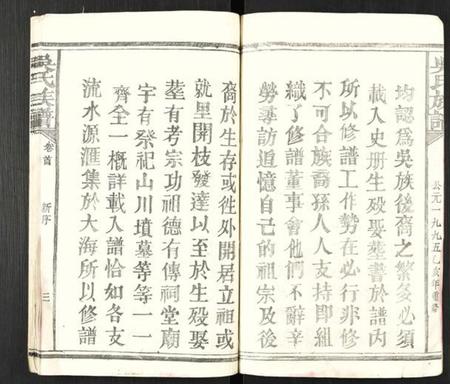 吳氏族譜
公元一九九五乙亥年重修
均認爲吳族後裔之繁多必須
載入史册生殁娶塟書於譜内
所以修譜工作勢在必行非修
不可合族裔孫人人支持即組
織了修譜董事會他們不辭辛
勞尋訪追憶自己的祖宗及後
裔於生存或徃外開居立祖或
就里開枝發達以至於生殁娶
塟有考宗功祖德有傳祠堂廟
宇有祭祀山川墳墓等等一一
齊全一概詳載入譜恰如各支
流水源滙集於大海所以修譜
吳氏族譜
卷首
新序
三